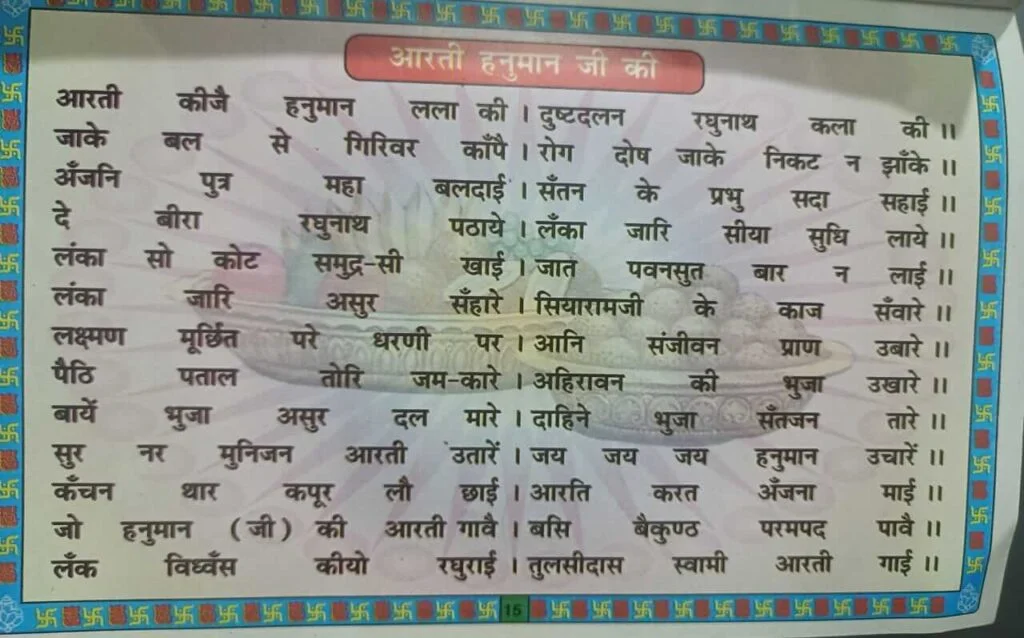 आरती हनुमान जी की
आरती कीजै हनुमान लला की । दुष्टदलन रघुनाथ कला की ।।
जाके बल से गिरिवर काँपै । रोग दोष जाके निकट न झाँके ।।
अँजनि पुत्र महा बलदाई । सँतन के प्रभु सदा सहाई ।।
दे बीरा रघुनाथ पठाये । लँका जारि सीया सुधि लाये ।।
लंका सो कोट समुद्र-सी खाई । जात पवनसुत बार न लाई ।।
लंका जारि असुर सँहारे । सियारामजी के काज सँवारे ।।
लक्ष्मण मूर्छित परे धरणी पर । आनि संजीवन प्राण उबारे ।।
पैठि पताल तोरि जम-कारे । अहिरावन की भुजा उखारे ।।
बायें भुजा असुर दल मारे । दाहिने भुजा सँतजन तारे ।।
सुर नर मुनिजन आरती उतारें । जय जय जय हनुमान उचारें ।।
कँचन थार कपूर लौ छाई । आरति करत अँजना माई ।।
जो हनुमान (जी) की आरती गावै । बसि बैकुण्ठ परमपद पावै ।।
लँक विध्वँस कीयो रघुराई । तुलसीदास स्वामी आरती गाई ।।
15